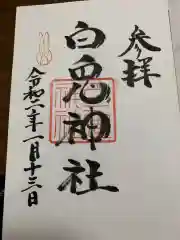 参拝
白兎神社
令和二年一月十三日